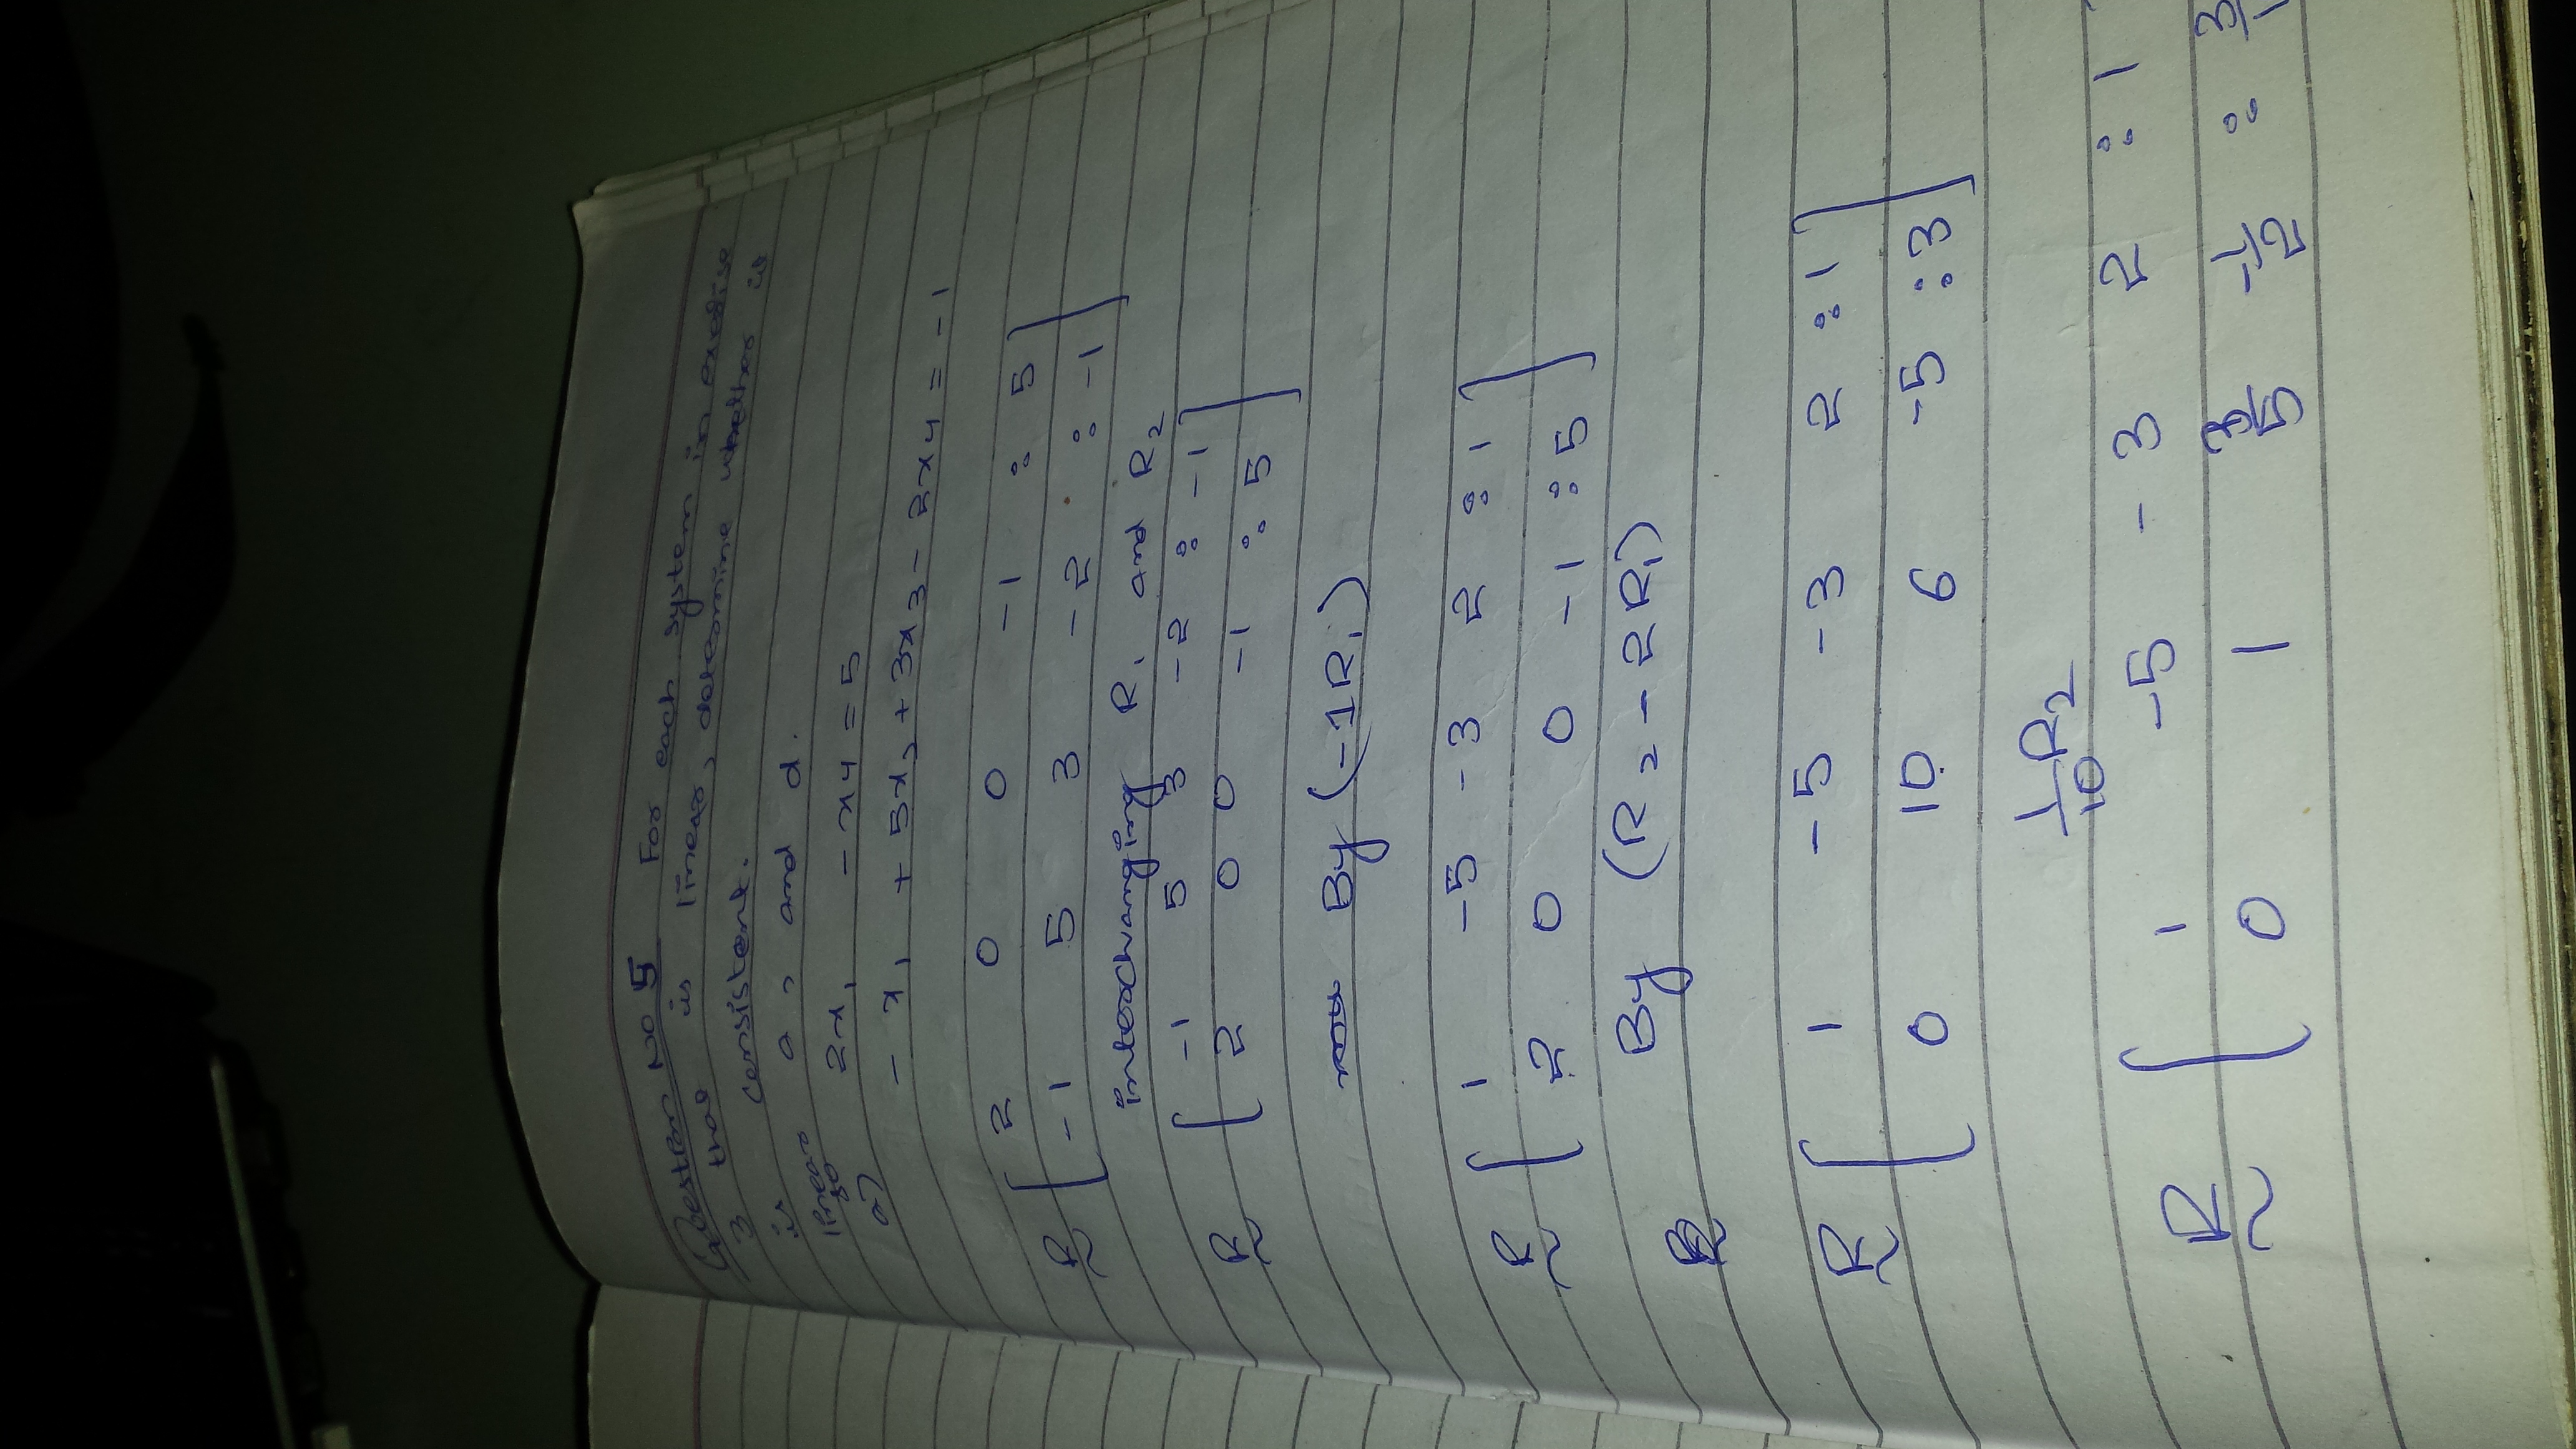 Question No 5 For each system in exercise
3 that is linear, determine whether it
is consistent.
linear a, and d.
so
a) 2x₁ - x₄ = 5
- x₁ + 5x₂ + 3x₃ - 2x₄ = -1
R [ 2 0 0 -1 : 5 ]
~ [ -1 5 3 -2 : -1 ]
interchanging R₁ and R₂
R [ -1 5 3 -2 : -1 ]
~ [ 2 0 0 -1 : 5 ]
By (-1R₁)
R [ 1 -5 -3 2 : 1 ]
~ [ 2 0 0 -1 : 5 ]
By (R₂ - 2R₁)
R [ 1 -5 -3 2 : 1 ]
~ [ 0 10 6 -5 : 3 ]
1/10 R₂
R [ 1 -5 -3 2 : 1
~ [ 0 1 3/5 -1/2 : 3/1